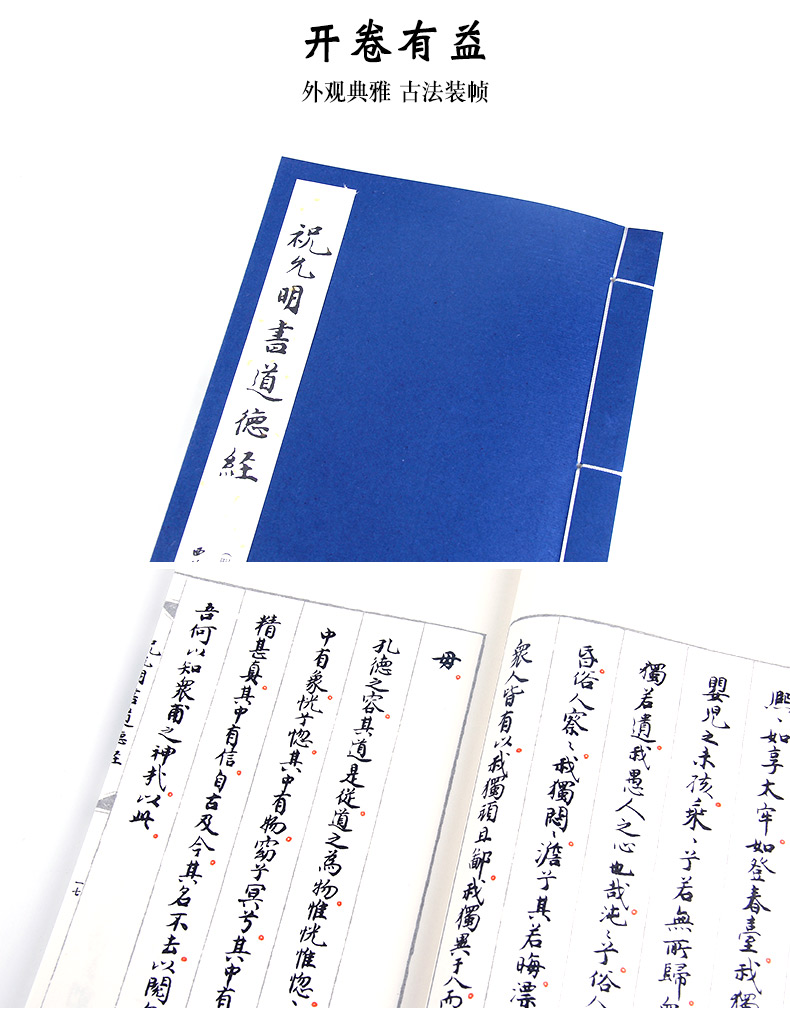 开卷有益
外观典雅 古法装帧
祝允明書道德経
熈〻如享太牢如登春臺我獨
嬰児之未孩乘〻兮若無所歸
獨若遺我愚人之心也哉沌〻兮俗人
昏俗人察〻我獨悶〻澹兮其若晦漂
衆人皆有以我獨頑且鄙我獨異于人而
母
孔德之容其道是従道之為物惟恍惟惚〻
中有象恍兮惚其中有物窈兮冥兮其中有
精甚真其中有信自古及今其名不去以閲
吾何以知衆甫之神哉以此
祝允明書道德経
一七